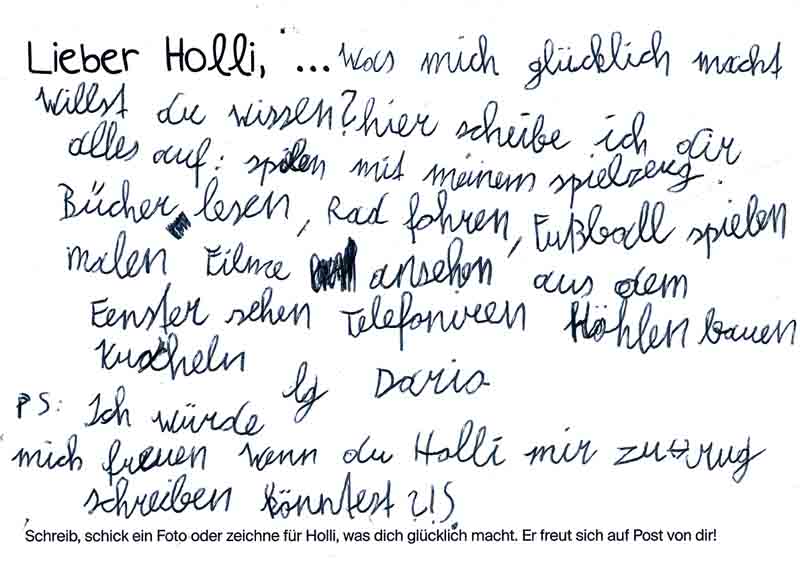 Lieber Holli, ... Was mich glücklich macht
willst du wissen? hier scheibe ich dir
alles auf: spilen mit meinem spielzeug.
Bücher lesen, Rad fahren, Fußball spielen
malen Filme ansehen aus dem
Fenster sehen Telefonieren Höhlen bauen
Kuscheln
lg Dario
PS: Ich würde
mich freuen wenn du Holli mir zurrug
schreiben könntest ?!?
Schreib, schick ein Foto oder zeichne für Holli, was dich glücklich macht. Er freut sich auf Post von dir!